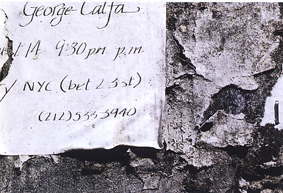 George Calfa
14 9:30 pm p.m.
NYC (bet 2 3 st)
(212) 533 3940